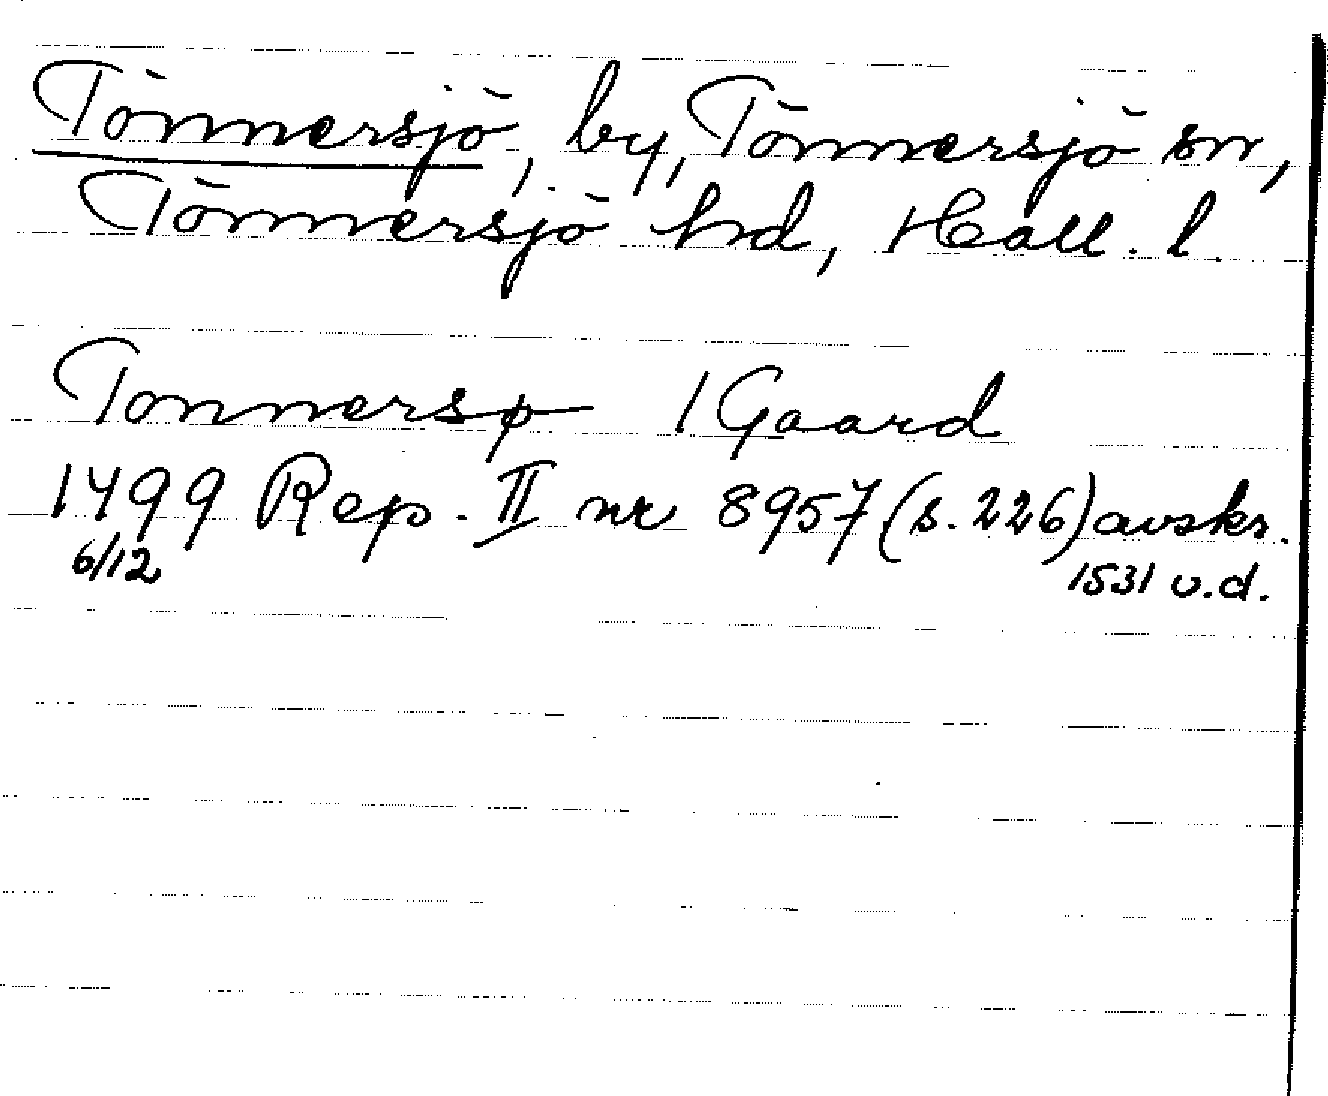 Tönnersjö, by, Tönnersjö sn,
Tönnersjö hd, Hall. l.
Tonnersø 1 Gaard
1499 Rep. II nr 8957 (s. 226) avskr.
6/12 1531 u.d.